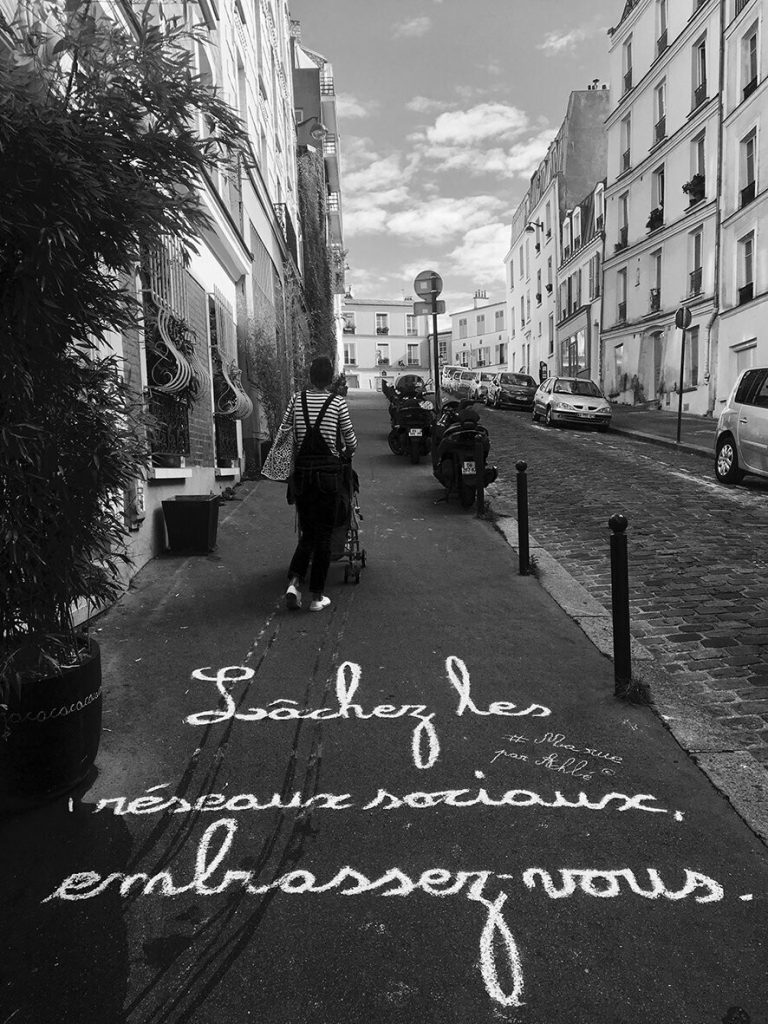 Lâchez les
# Ma rue
par Achbé ©
réseaux sociaux,
embrassez-vous.